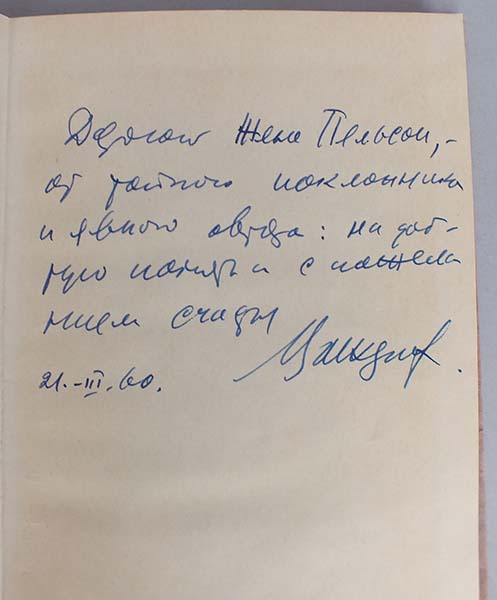 Дорогой Жене Пельсон,-
от тайного поклонника
и явного автора: на доб-
рую память и с пожела
нием счастья
21.-III.60.